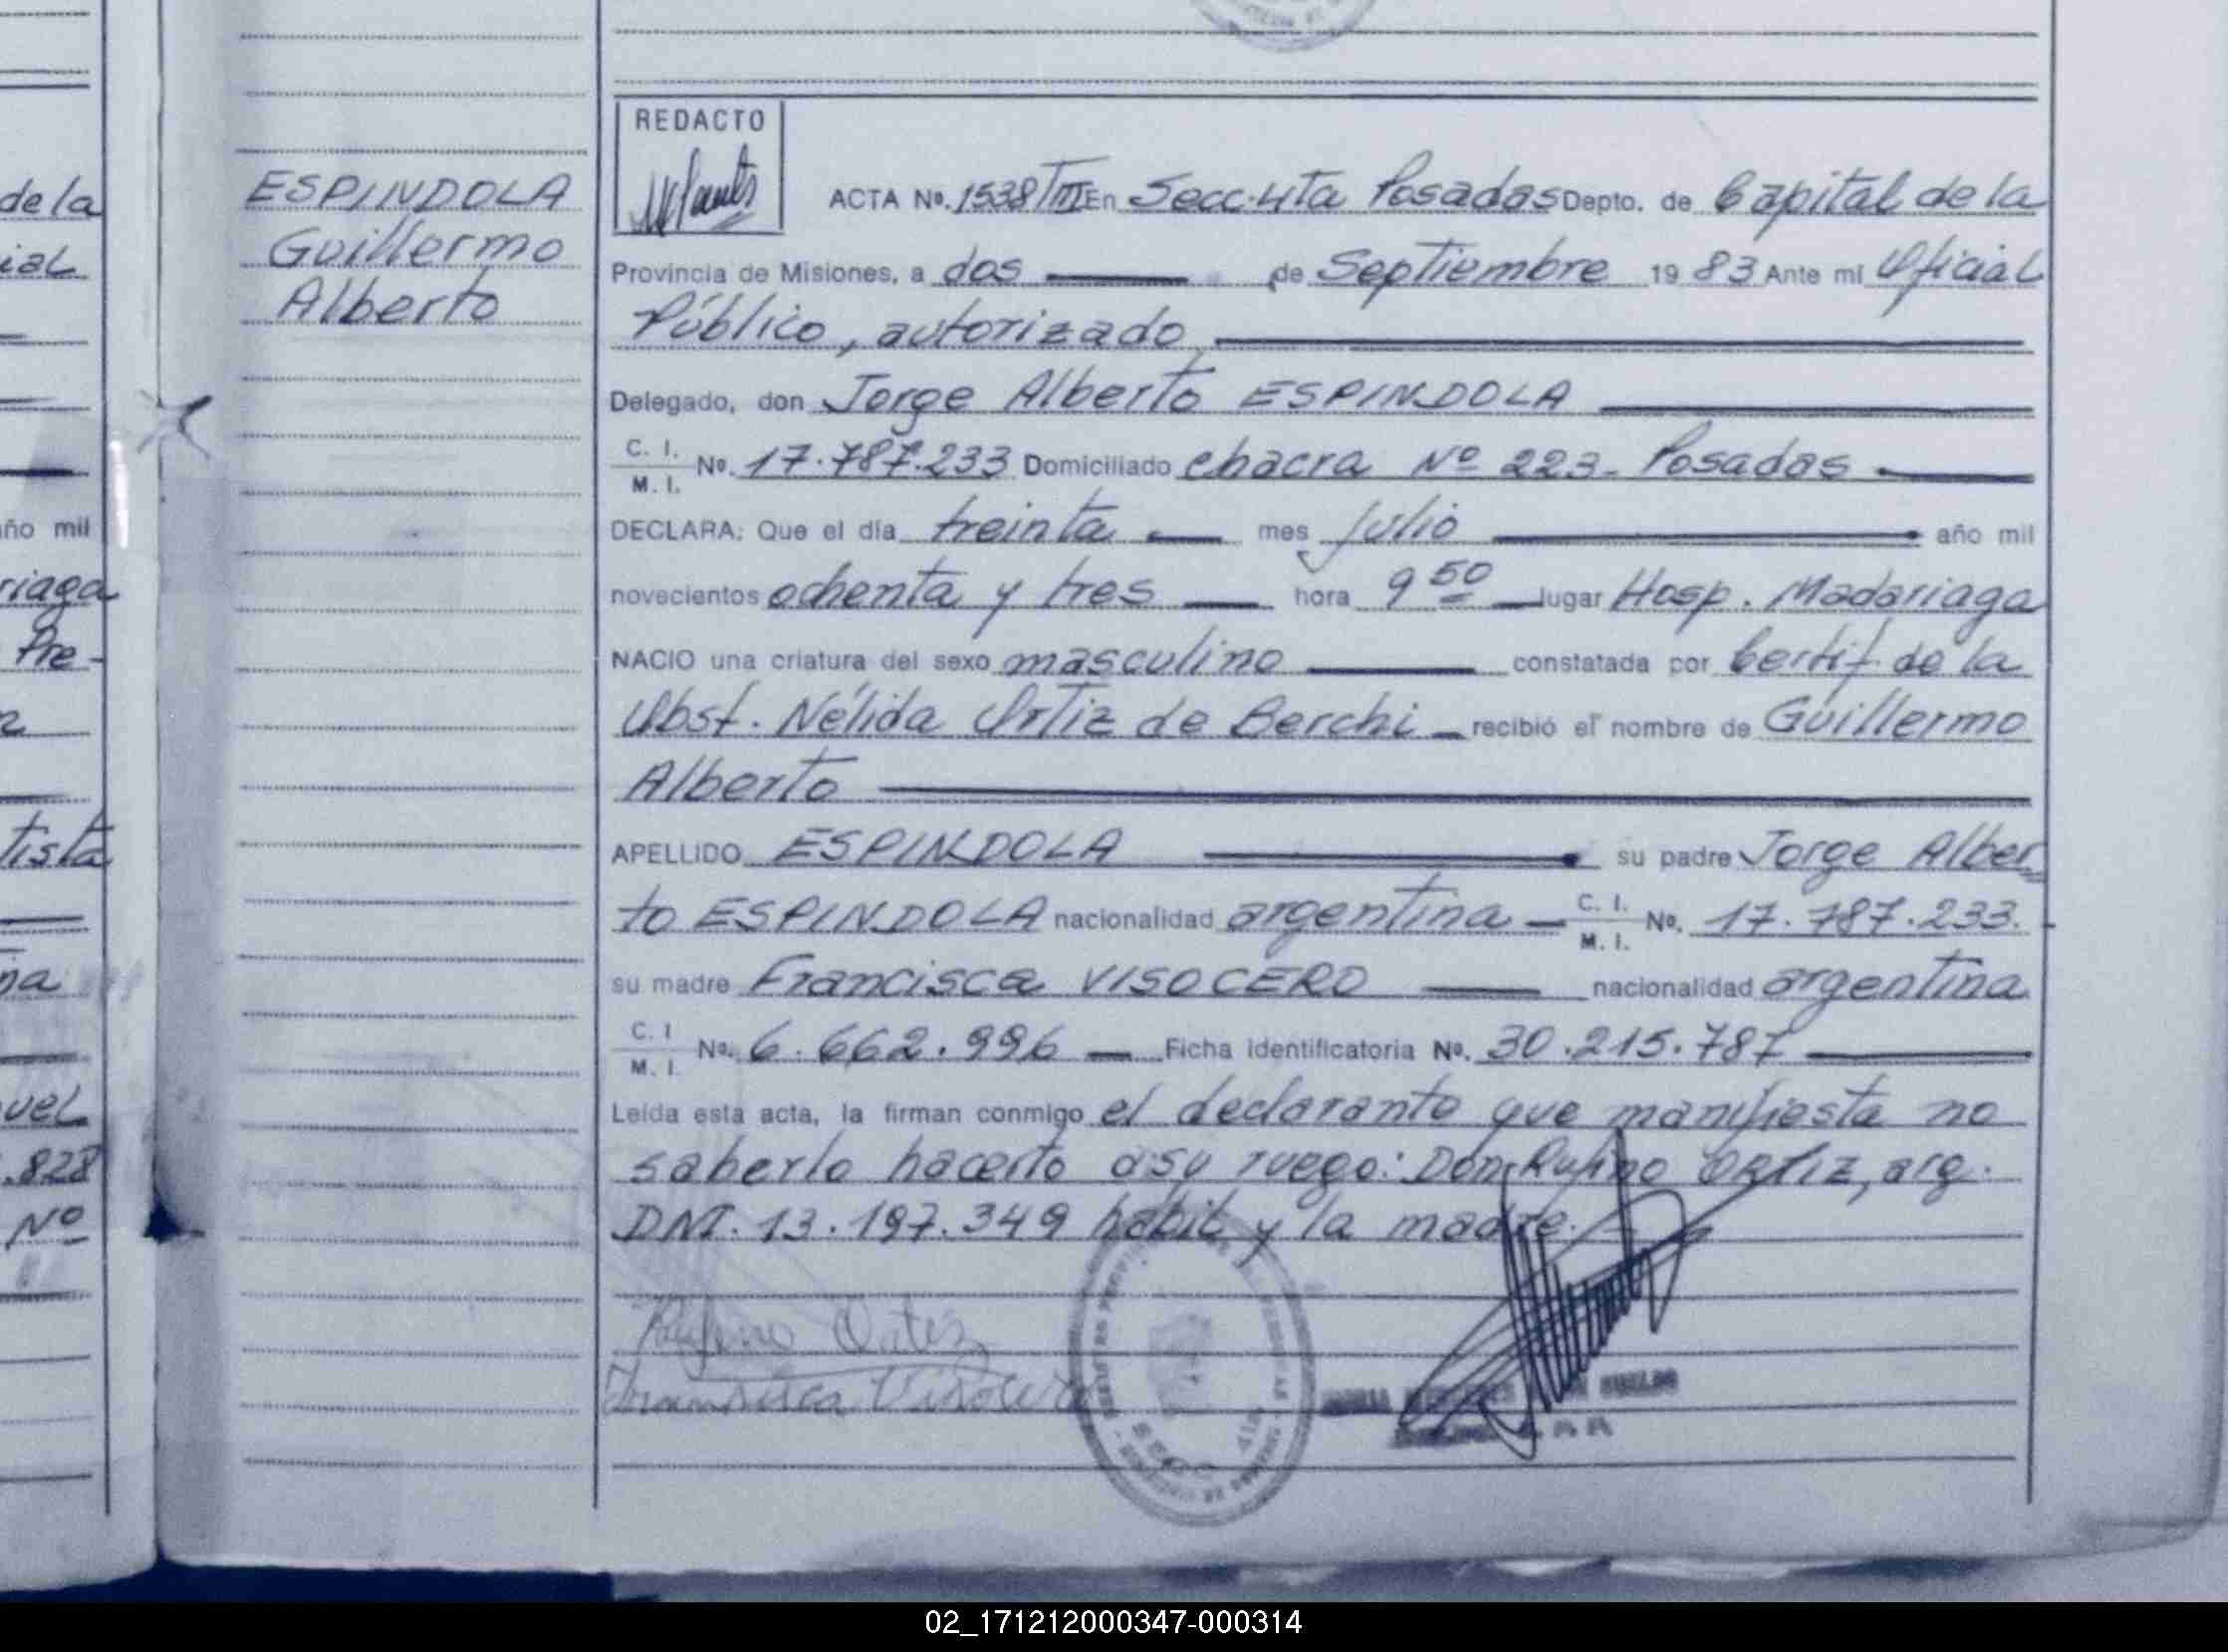 de la
ial
ño mil
riaga
Pre-
tista
na
uel
.828
Nº
ESPINDOLA
Guillermo
Alberto
REDACTO
ACTA Nº. 1538/TIII En Secc. 4ta Posadas Depto. de Capital de la
Provincia de Misiones, a dos de Septiembre 1983 Ante mi Oficial
Público, autorizado
Delegado, don Jorge Alberto ESPINDOLA
C. I.
M. I. Nº. 17.787.233 Domiciliado chacra Nº 223- Posadas
DECLARA: Que el día treinta mes Julio año mil
novecientos ochenta y tres hora 9 50 lugar Hosp. Madariaga
NACIO una criatura del sexo masculino constatada por Certif. de la
Obst. Nélida Ortiz de Berchi recibió el nombre de Guillermo
Alberto
APELLIDO ESPINDOLA su padre Jorge Alber
to ESPINDOLA nacionalidad argentina C. I.
M. I. Nº. 17.787.233.-
su madre Francisca VISOCERO nacionalidad argentina
C. I
M. I. Nº. 6.662.996 Ficha identificatoria Nº. 30.215.787
Leída esta acta, la firman conmigo el declarante que manifiesta no
saberlo hacerlo a su ruego: Don Rufino ORTIZ, arg.
DNI. 13.197.349 habil y la madre.
Rufino Ortiz
Francisca Visocero
02_171212000347-000314